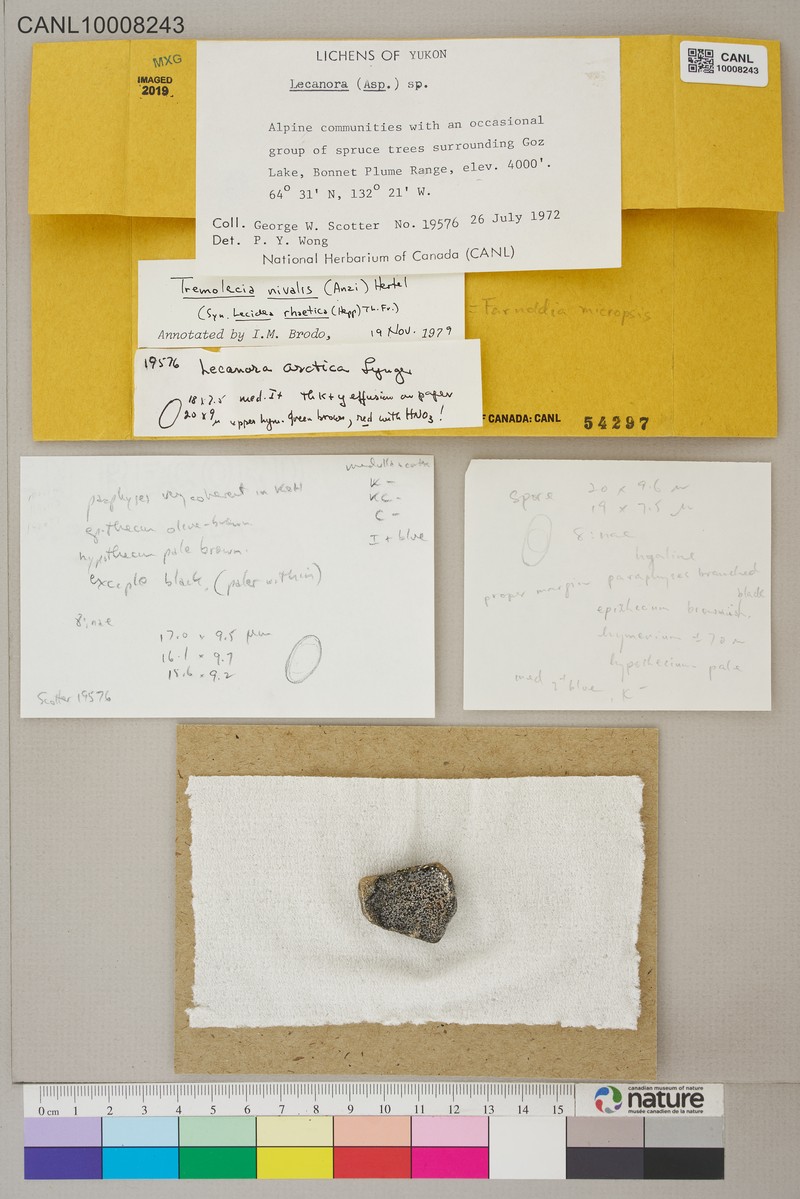 CANL10008243
MXG
IMAGED
2019
CANL
10008243
LICHENS OF YUKON
Lecanora (Asp.) sp.
Alpine communities with an occasional
group of spruce trees surrounding Goz
Lake, Bonnet Plume Range, elev. 4000'.
64° 31' N, 132° 21' W.
Coll. George W. Scotter No. 19576 26 July 1972
Det. P. Y. Wong
National Herbarium of Canada (CANL)
Tremolecia nivalis (Anzi) Hertel
(Syn. Lecidea rhaetica (Hepp) Th. Fr.)
Annotated by I.M. Brodo, 19 Nov. 1979
= Farnoldia micropsis
19576 Lecanora arctica Lynge
18 x 7.5 med. I+ Th K+ y effusion on paper
20 x 9 µ upper hym. green brown, red with HNO3!
F CANADA: CANL 54297
medulla + cortex
K -
KC -
C -
I + blue
paraphyses very coherent in KOH
epithecium olive-brown
hypothecium pale brown.
exciple black, (paler within)
8; nae
17.0 x 9.5 µm
16.1 x 9.7
15.6 x 9.2
Scotter 19576
Spore 20 x 9.6 µ
19 x 7.5 µ
8; nae
hyaline
proper margin paraphyses branched
black
epithecium brownish.
hymenium ± 70 µ
hypothecium pale
med blue, K -
0 cm 1 2 3 4 5 6 7 8 9 10 11 12 13 14 15
canadian museum of nature
nature
musée canadien de la nature